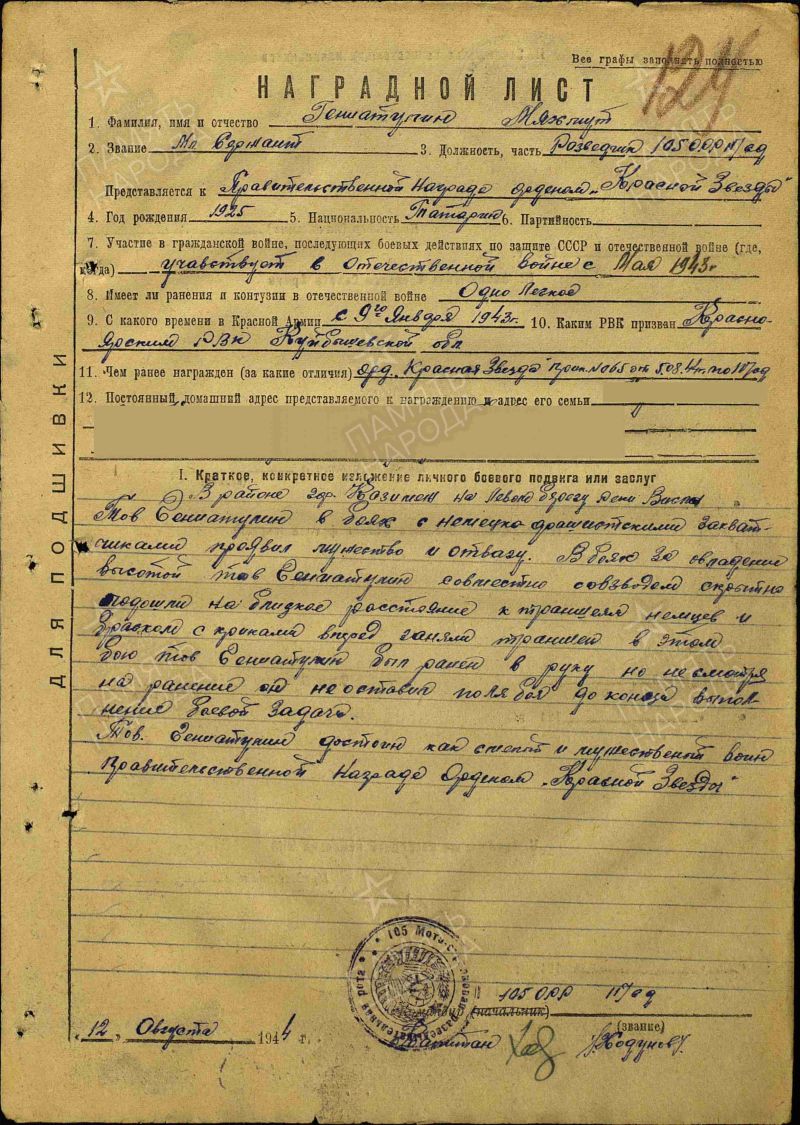 Все графы заполнять полностью
129
НАГРАДНОЙ ЛИСТ
1. Фамилия, имя и отчество Гениатулин
2. Звание Мл Сержант 3. Должность, часть Разведчик 105 ОРР
Представляется к Правительственной Награде орденом „Красной Звезды"
4. Год рождения 1925 5. Национальность Татарин 6. Партийность
7. Участие в гражданской войне, последующих боевых действиях по защите СССР и отечественной войне (где,
когда) учавствует в Отечественной войне с Мая 1943г
8. Имеет ли ранения и контузии в отечественной войне Одно Легкое
9. С какого времени в Красной Армии с 9го Января 1943г. 10. Каким РВК призван Красно-
Ярским РВК Куйбышевской обл
11. Чем ранее награжден (за какие отличия) орд. „Красная Звезда" Прик. №065 от 5.08.44г. по
12. Постоянный домашний адрес представляемого к награждению и адрес его семьи
I. Краткое, конкретное изложение личного боевого подвига или заслуг
В районе гор. на Левом берегу реки Вислы
Тов Гениатулин в боях с немецко фашистскими захват-
чиками проявил мужество и отвагу. В боях за овладение
высотой тов Гениатулин совместно совзводом скрытно
подошли на близкое расстояние к траншеям немцев и
броском с криками вперед заняли траншеи в этом
бою тов Гениатулин был ранен в руку но несмотря
на ранение он не оставил поля боя до конца выпол-
нения боевой задачи.
Тов. Гениатулин достоин как смелый и мужественный воин
Правительственной Награде Орденом „Красной Звезды"
ДЛЯ ПОДШИВКИ
105 Мотострелковая разведывательная рота
105 ОРР
(начальник)
(звание)
„12" Августа 1944 г.
Капитан Ходунов
ПАМЯТЬ НАРОДА